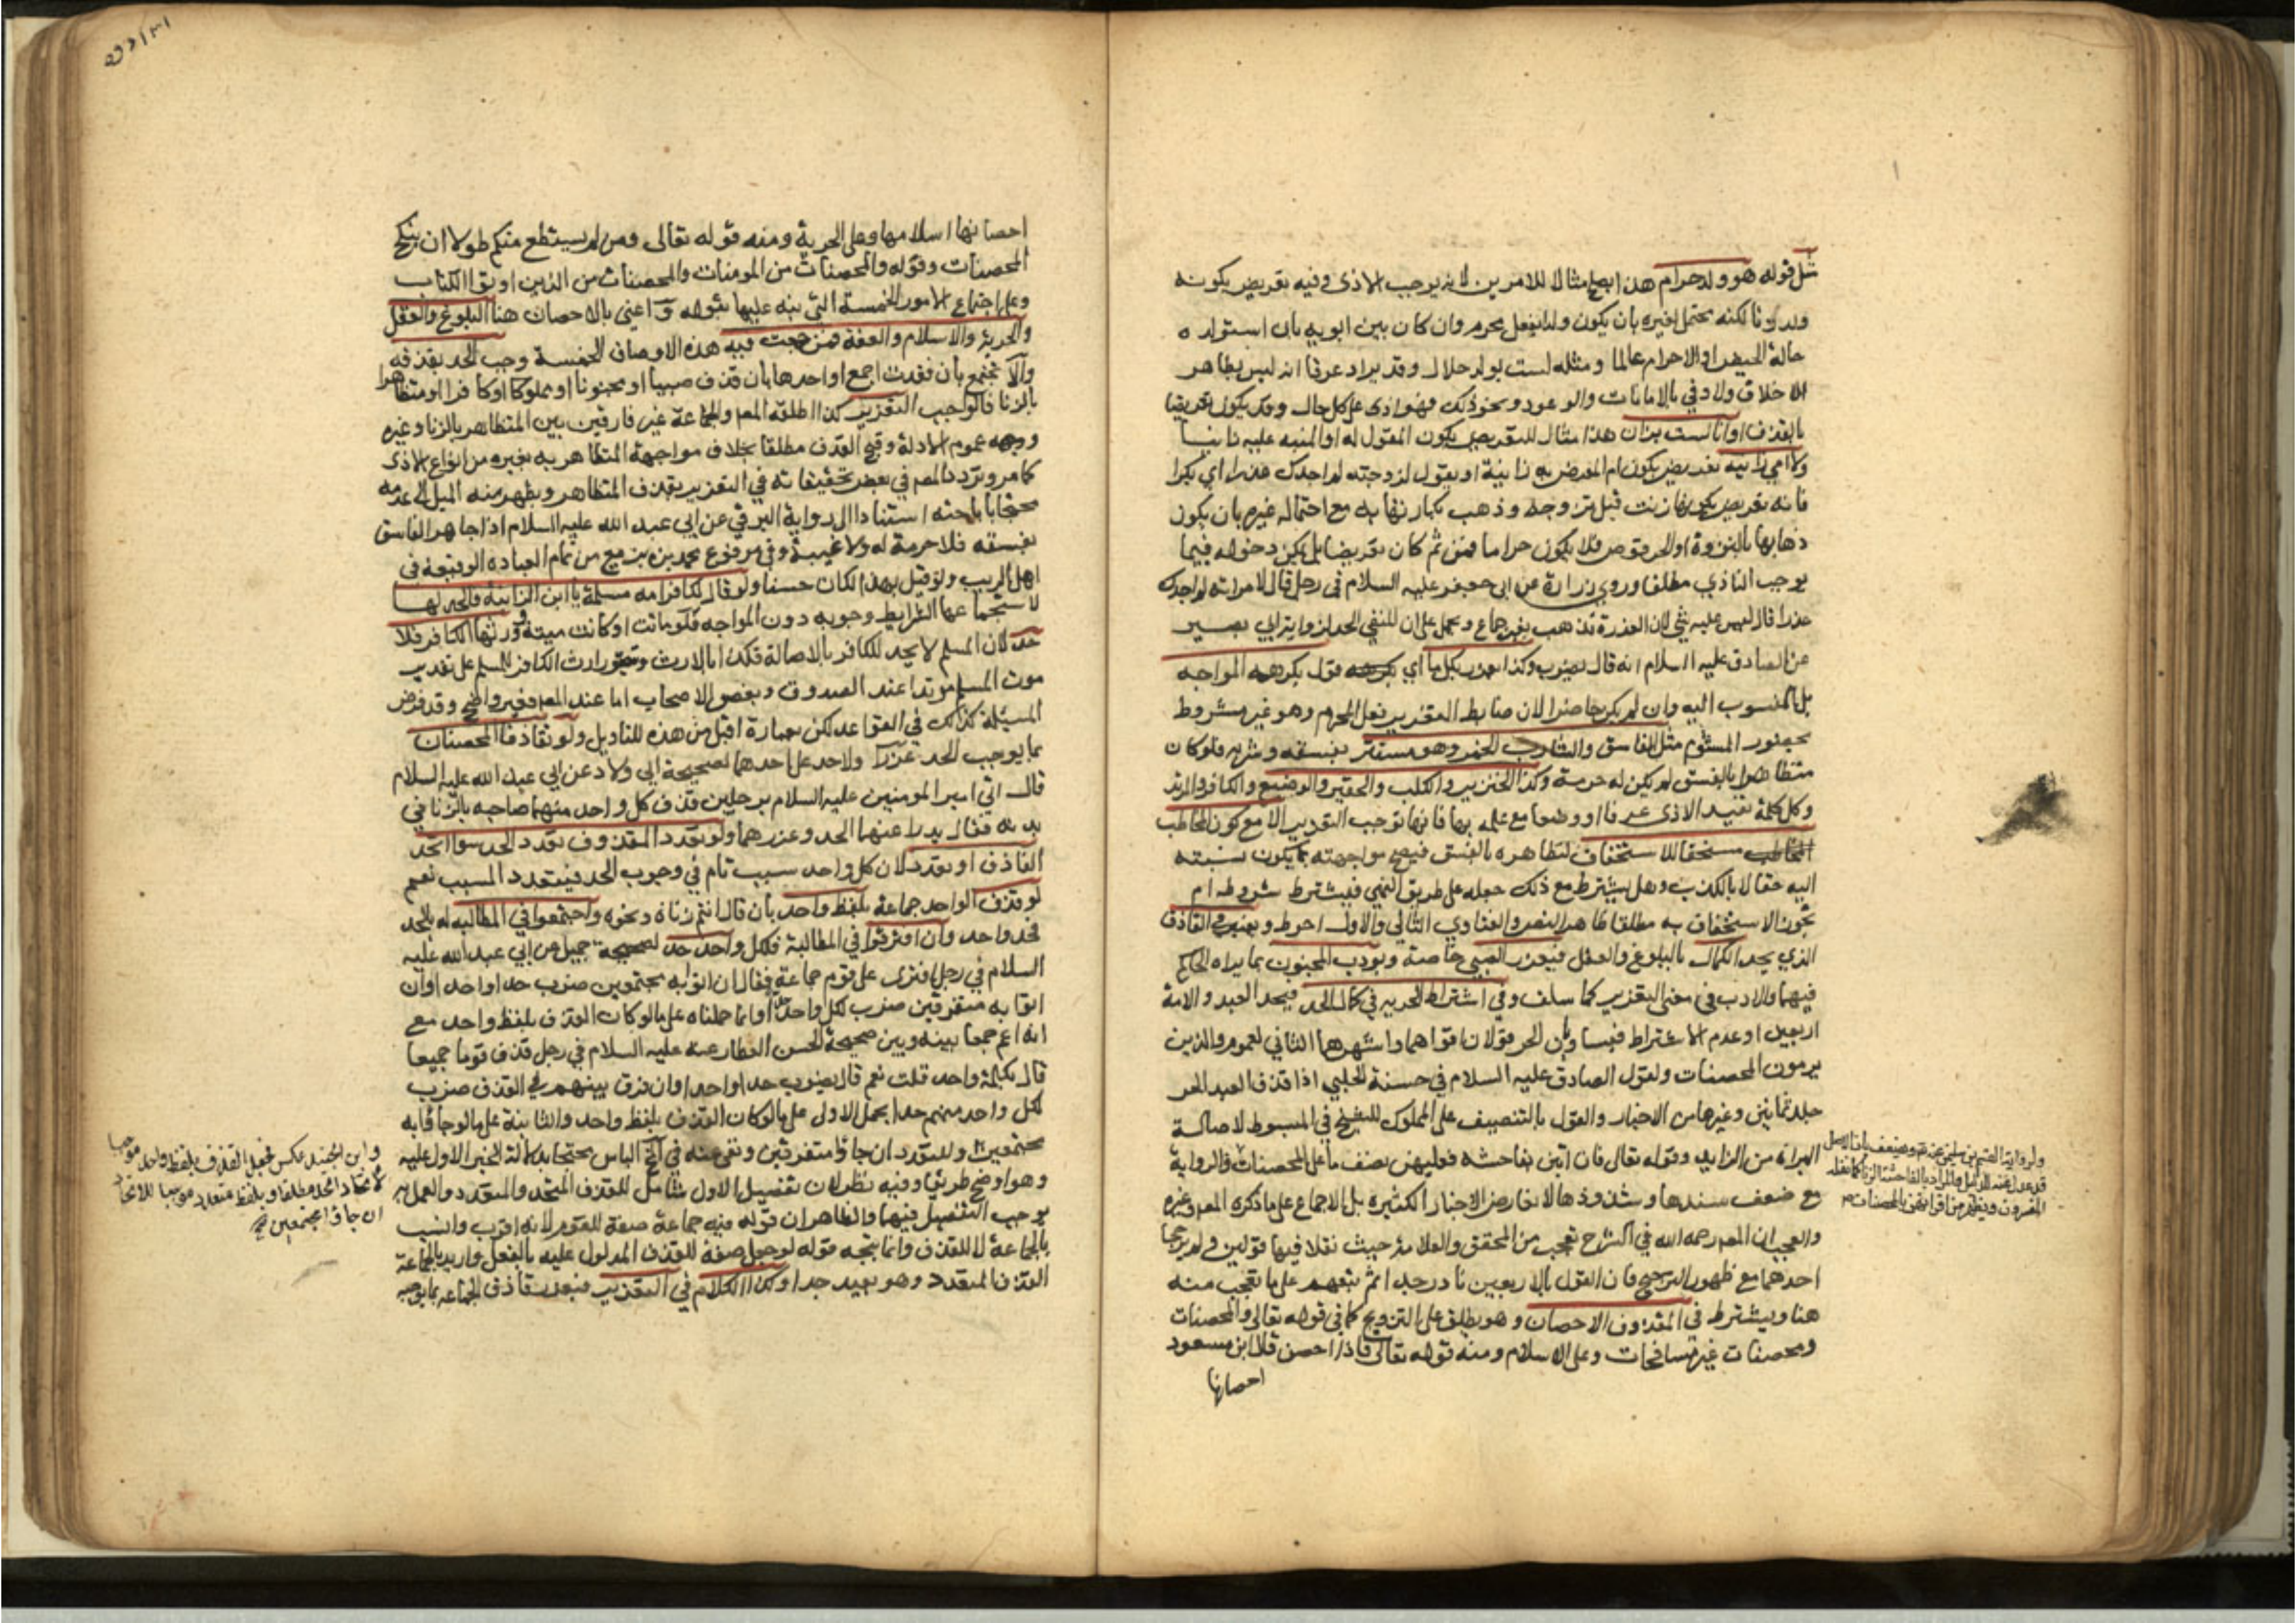 مثل قوله هو ولد حرام هذا يصلح مثالا للامرين لانه يوجب الاذى وفيه تعريض بكونه
ولد زنا لكنه يحتمل غيره بان يكون ولد بفعل محرم وان كان بين ابويه بان استولده
حالة الحيض او الاحرام عالما ومثله لست بولد حلال وقد يراد عرفا انه ليس بطاهر
الاخلاق ولا وفي بالامانات والوعود ونحو ذلك فهو اذى على كل حال وقد يكون تعريضا
بالقذف او انا لست بزان هذا مثال للتعريض بكون المقول له او المنبه عليه زانيا
ولا امي زانيه تعريض بكون ام المعرض به زانية او يقول لزوجته لم اجدك عذرا اي بكرا
فانه تعريض بكونها زنت قبل تزوجه وذهب بكارتها به مع احتماله غيره بان يكون
ذهابها بالنزوة او الحرقوص فلا يكون حراما فمن ثم كان تعريضا بل يمكن دخوله فيما
يوجب التاذي مطلقا وروى زرارة عن ابي جعفر عليه السلام في رجل قال لامراته لم اجدك
عذرا قال ليس عليه شي لان العذرة تذهب بغير جماع ويحمل على ان المنفي الحد لرواية ابي بصير
عن الصادق عليه السلام انه قال يضرب وكذا يعزر بكل ما اي قول يكرهه المواجه
بل المنسوب اليه وان لم يكن حاضرا لان ضابط التعزير فعل المحرم وهو غير مشروط
بحضور المشتوم مثل الفاسق والشارب الخمر وهو مستتر بفسقه وشربه فلو كان
متظاهرا بالفسق لم يكن له حرمة وكذا الخنزير والكلب والحقير والوضيع والكافر والمرتد
وكل كلمة تفيد الاذى عرفا او وضعا مع علمه بها فانها توجب التعزير الا مع كون المخاطب
المخاطب مستحقا للاستخفاف لتظاهره بالفسق فيصح مواجهته بما يكون نسبته
اليه حقا لا بالكذب وهل يشترط مع ذلك جعله على طريق النهي فيشترط شروطه ام
يجوز الاستخفاف به مطلقا ظاهر النص والفتاوي الثاني والاول احوط ويعتبر في القاذف
الذي يحد الكمال بالبلوغ والعقل فيعزر الصبي خاصة ويؤدب المجنون بما يراه الحاكم
فيهما والادب في معنى التعزير كما سلف وفي اشتراط الحريه في كمال الحد فيحد العبد والامة
اربعين او عدم الاشتراط فيساويان الحر قولان اقواهما واشهرهما الثاني لعموم والذين
يرمون المحصنات ولقول الصادق عليه السلام في حسنة الحلبي اذا قذف العبد الحر
جلد ثمانين وغيرها من الاخبار والقول بالتنصيف على المملوك للشيخ في المبسوط لاصالة
البراة من الزايد وقوله تعالى فان اتين بفاحشة فعليهن نصف ما على المحصنات والرواية
مع ضعف سندها وشذوذها لا تعارض الاخبار الكثيره بل الاجماع على ما ذكره المص وغيره
والعجب ان المص رحمه الله في الشرح تعجب من المحقق والعلامة حيث نقلا فيها قولين ولم يرجحا
احدهما مع ظهور الترجيح فان القول بالاربعين نادر جدا ثم تبعهم على ما تعجب منه
هنا ويشترط في المقذوف الاحصان وهو يطلق على التزويج كما في قوله تعالى والمحصنات
ومحصنات غير مسافحات وعلى الاسلام ومنه قوله تعالى فاذا احصن قال ابن مسعود
احصانها
احصانها اسلامها وعلى الحرية ومنه قوله تعالى ومن لم يستطع منكم طولا ان ينكح
المحصنات وقوله والمحصنات من المومنات والمحصنات من الذين اوتوا الكتاب
وعلى اجتماع الامور الخمسة التي نبه عليها بقوله واعني بالاحصان هنا البلوغ والعقل
والحرية والاسلام والعفة فمن اجتمعت فيه هذه الاوصاف الخمسة وجب الحد بقذفه
والا تجتمع بان فقدت اجمع او احدها بان قذف صبيا او مجنونا او مملوكا او كافرا او متظاهرا
بالزنا فالواجب التعزير كذا اطلقه المص والجماعة غير فارقين بين المتظاهر بالزنا وغيره
ووجهه عموم الادلة وقبح القذف مطلقا بخلاف مواجهة المتظاهر به بغيره من انواع الاذى
كما مر وتردد المص في بعض تحقيقاته في التعزير بقذف المتظاهر ويظهر منه الميل الى عدمه
محتجا باباحته استنادا الى رواية البرقي عن ابي عبد الله عليه السلام اذا جاهر الفاسق
بفسقه فلا حرمة له ولا غيبة وفي مرفوع محمد بن بزيع من تمام العباده الوقيعة في
اهل الريب ولو قيل بهذا لكان حسنا ولو قال لكافر امه مسلمة يا ابن الزانية فالحد لها
لاستجماعها الشرايط وجوبه دون المواجه فلو ماتت او كانت ميتة وورثها الكافر فلا
حد لان المسلم لا يحد للكافر بالاصالة فكذا بالارث ويتصور ارث الكافر المسلم على تقدير
موت المسلم مرتدا عند الصدوق وبعض الاصحاب اما عند المص فغير واضح وقد فرض
المسئلة كذلك في القواعد لكن بعبارة اقبل من هذه للتاويل ولو تقاذفا المحصنان
بما يوجب الحد عزرا ولا حد على احدهما لصحيحة ابي ولاد عن ابي عبد الله عليه السلام
قال اتي امير المومنين عليه السلام برجلين قذف كل واحد منهما صاحبه بالزنا في
بدنه فقال يدرا عنهما الحد وعزرهما ولو تعدد المقذوف تعدد الحد سوا اتحد
القاذف او تعدد لان كل واحد سبب تام في وجوب الحد فيتعدد المسبب نعم
لو قذف الواحد جماعة بلفظ واحد بان قال انتم زناه ونحوه واجتمعوا في المطالبه له بالحد
فحد واحد وان افترقوا في المطالبة فلكل واحد حد لصحيحة جميل عن ابي عبد الله عليه
السلام في رجل افترى على قوم جماعة فقال ان اتوا به مجتمعين ضرب حدا واحدا وان
اتوا به متفرقين ضرب لكل واحد حدا وانما حملناه على ما لو كان القذف بلفظ واحد مع
انه اعم جمعا بينه وبين صحيحة الحسن العطار عنه عليه السلام في رجل قذف قوما جميعا
قال بكلمة واحدة قلت نعم قال يضرب حدا واحدا وان فرق بينهم في القذف ضرب
لكل واحد منهم حدا بحمل الاولى على ما لو كان القذف بلفظ واحد والثانية على ما لو جاؤا به
مجتمعين وابن الجنيد
وهو اوضح طريقا وفيه نظر لان تفصيل الاول شامل للقذف المتحد والمتعدد والعمل به
يوجب التفصيل فيهما والظاهر ان قوله فيه جماعة صفة للقوم لانه اقرب وانسب
بالجماعة لا للقذف وانما يتجه قوله لو جعل صفة للقذف المدلول عليه بالفعل واريد بالجماعة
القذف المتعدد وهو بعيد جدا وكذا الكلام في التعزير فيعزر قاذف الجماعة بما يوجبه
وابن الجنيد عكس فجعل القذف بلفظ واحد موجبا
لاتحاد الحد مطلقا وبلفظ متعدد موجبا للاتحاد
ان جاؤا مجتمعين